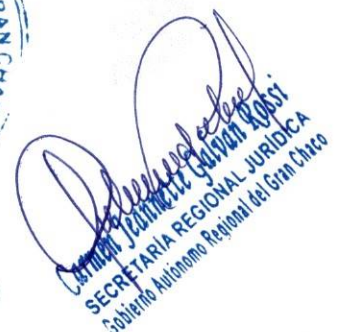 RAN CHA
Carmen Jeannette Galvan Rossi
SECRETARÍA REGIONAL JURÍDICA
Gobierno Autónomo Regional del Gran Chaco